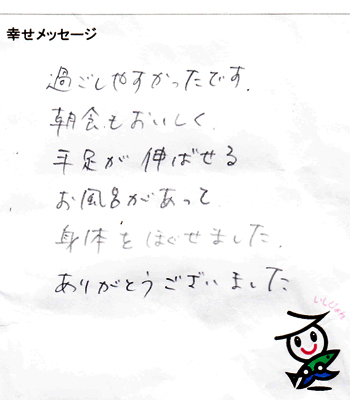 幸せメッセージ
過ごしやすかったです.
朝食もおいしく
手足が伸ばせる
お風呂があって
身体をほぐせました.
ありがとうございました